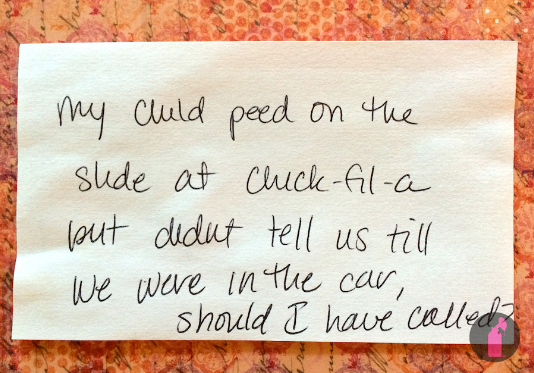 My child peed on the
slide at chick-fil-a
but didnt tell us till
we were in the car,
should I have called?